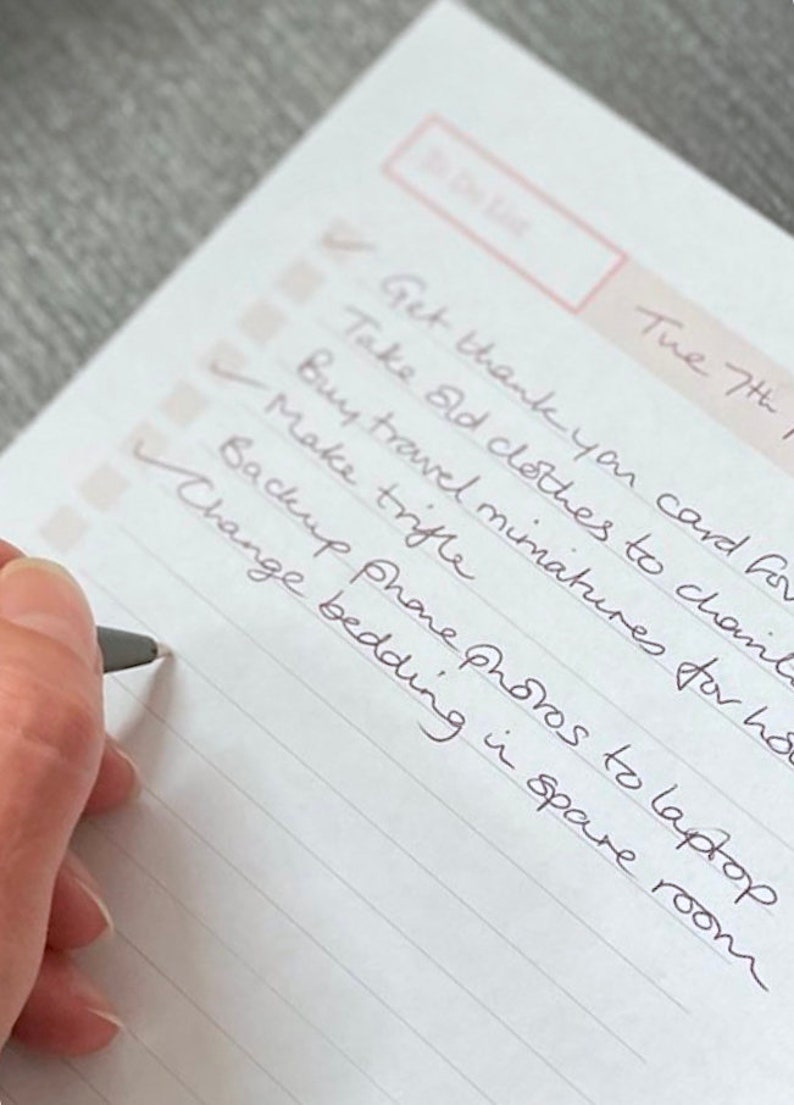 To Do List
Tue 7th
Get thank you card for
Take old clothes to
Buy travel miniatures for
Make trifle
Backup phone photos to laptop
Change bedding in spare room